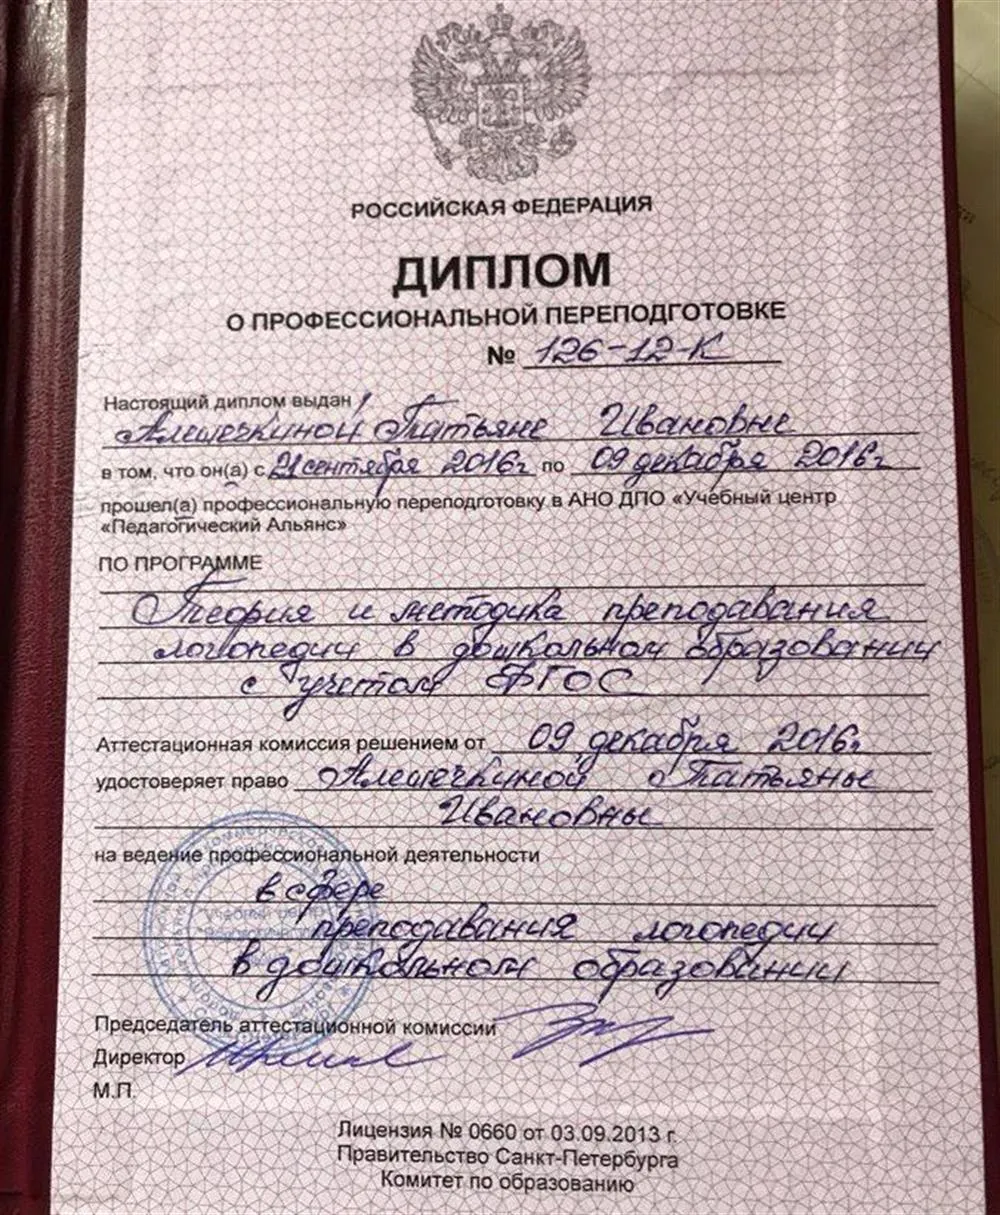 РОССИЙСКАЯ ФЕДЕРАЦИЯ
ДИПЛОМ
О ПРОФЕССИОНАЛЬНОЙ ПЕРЕПОДГОТОВКЕ
№ 126-12-К
Настоящий диплом выдан
Алешечкиной Татьяне Ивановне
в том, что он(а) с 21 сентября 2016г по 09 декабря 2016г
прошел(а) профессиональную переподготовку в АНО ДПО «Учебный центр
«Педагогический Альянс»
ПО ПРОГРАММЕ
Теория и методика преподавания
логопедии в дошкольном образовании
с учетом ФГОС
Аттестационная комиссия решением от 09 декабря 2016г
удостоверяет право Алешечкиной Татьяны
Ивановны
на ведение профессиональной деятельности
в сфере
преподавания логопедии
в дошкольном образовании
Председатель аттестационной комиссии
Директор
М.П.
Лицензия № 0660 от 03.09.2013 г.
Правительство Санкт-Петербурга
Комитет по образованию